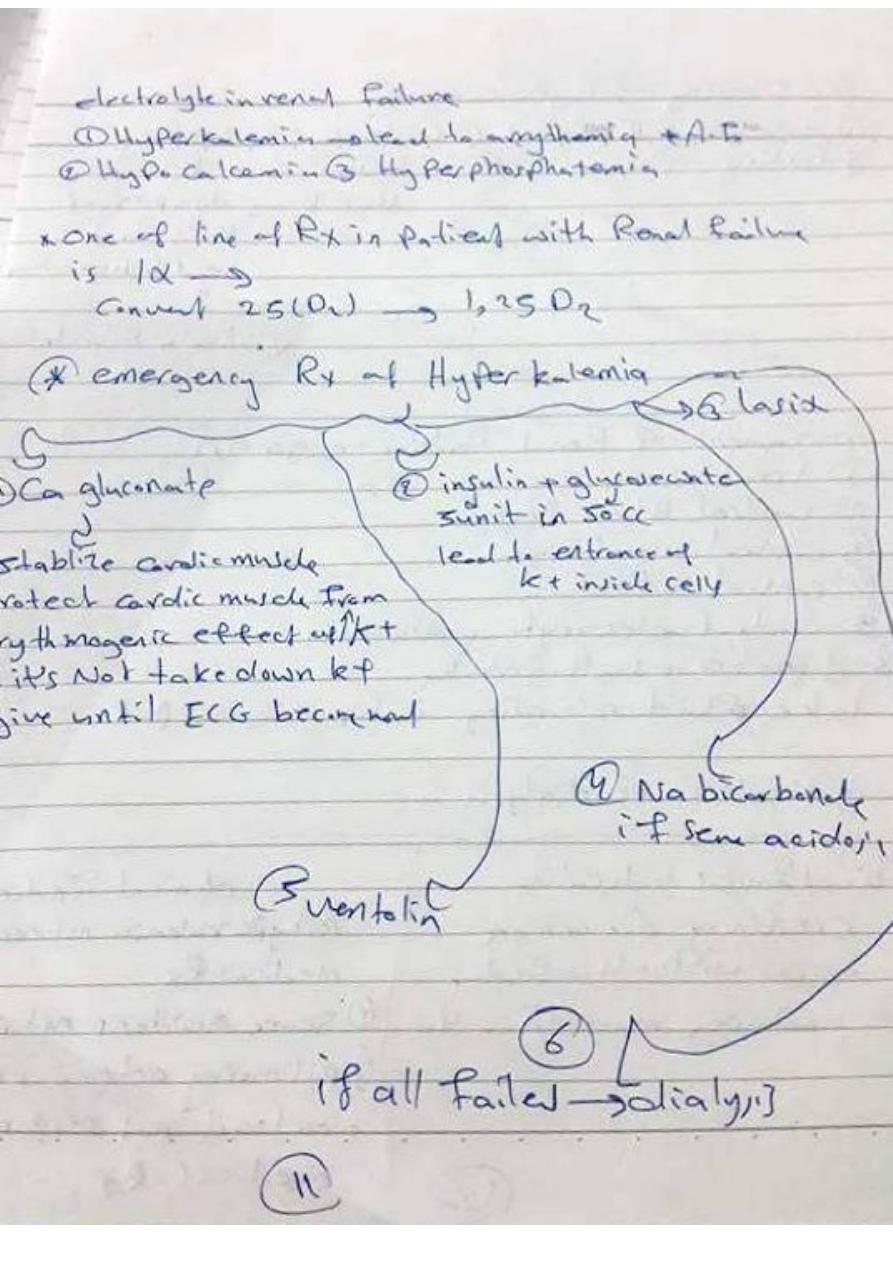 electrolyte in renal failure
① Hyperkalemia → lead to arrythemia + A.
② Hypocalcemia ③ Hyperphosphatemia
* one of line of Rx in patient with Renal failure
is 1α →
Convert 25(D₂) → 1,25 D₂
* emergency Rx of Hyperkalemia
→ ③ lasix
Ca gluconate
② insulin + glucose
5unit in 50cc
stablize cardic muscle
lead to entrance of
rotect cardic muscle from
K+ inside cell
rythmogenic effect of ↑K+
it's Not take down k+
give until ECG become
④ Na bicarbonate
if acidosis
5 ventolin
⑥
if all failed → dialysis
11